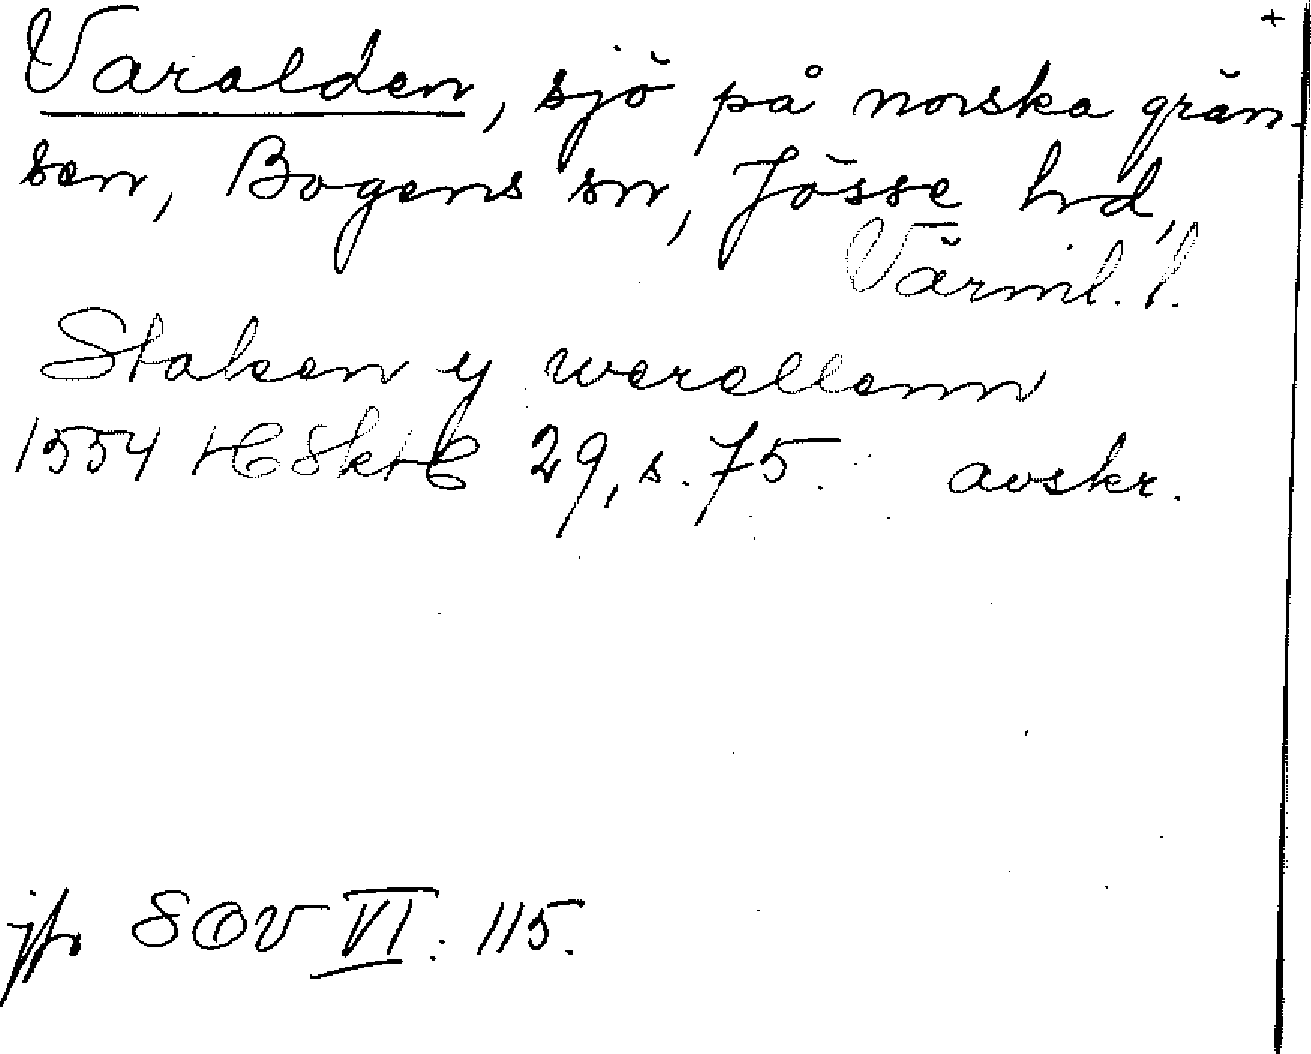 +
Varalden, sjö på norska grän-
sen, Bogens sn, Jösse hd,
Värml. l.
Staken y werellenn
1554 HSkH 29, s. 75. avskr.
jfr SOV VI: 115.